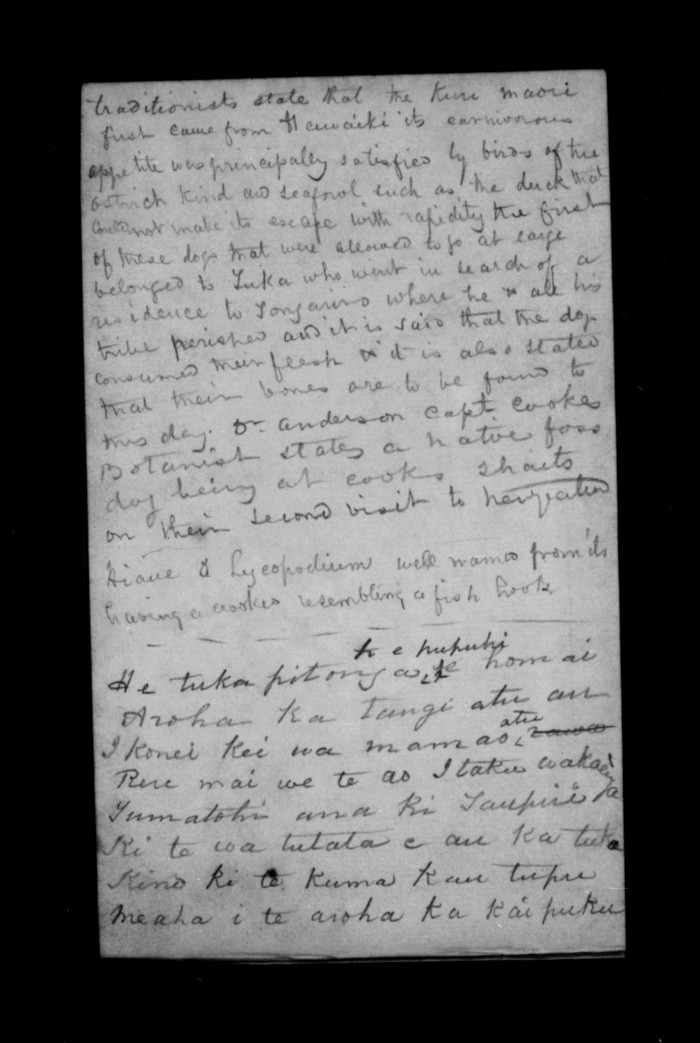 traditionists state that the Kuri maori
first came from Hawaiki its carnivorous
appetite was principally satisfied by birds of the
ostrich kind and seafowl such as the duck that
could not make its escape with rapidity the first
of these dogs that were allowed to go at large
belonged to Tuka who went in search of a
residence to Tongariro where he & all his
tribe perished and it is said that the dogs
consumed their flesh & it is also stated
that their bones are to be found to
this day. Dr. anderson capt cookes
Botanist states a native foss
dog being at cooks straits
on their second visit to
Hiaue & Lycopodium well named from its
having a crooked resembling a fish hook
he pupuhi
He tuka pitonga, te homai
Aroha ka tangi atu au
I konei kei wa mamao, atu
Rere mai we te ao I taku
Tumatohi ana ki Taupiri
Ki te wa tutata e au ka tuka
Kino ki te kuma kau tupu
meaha i te aroha ka kai puku